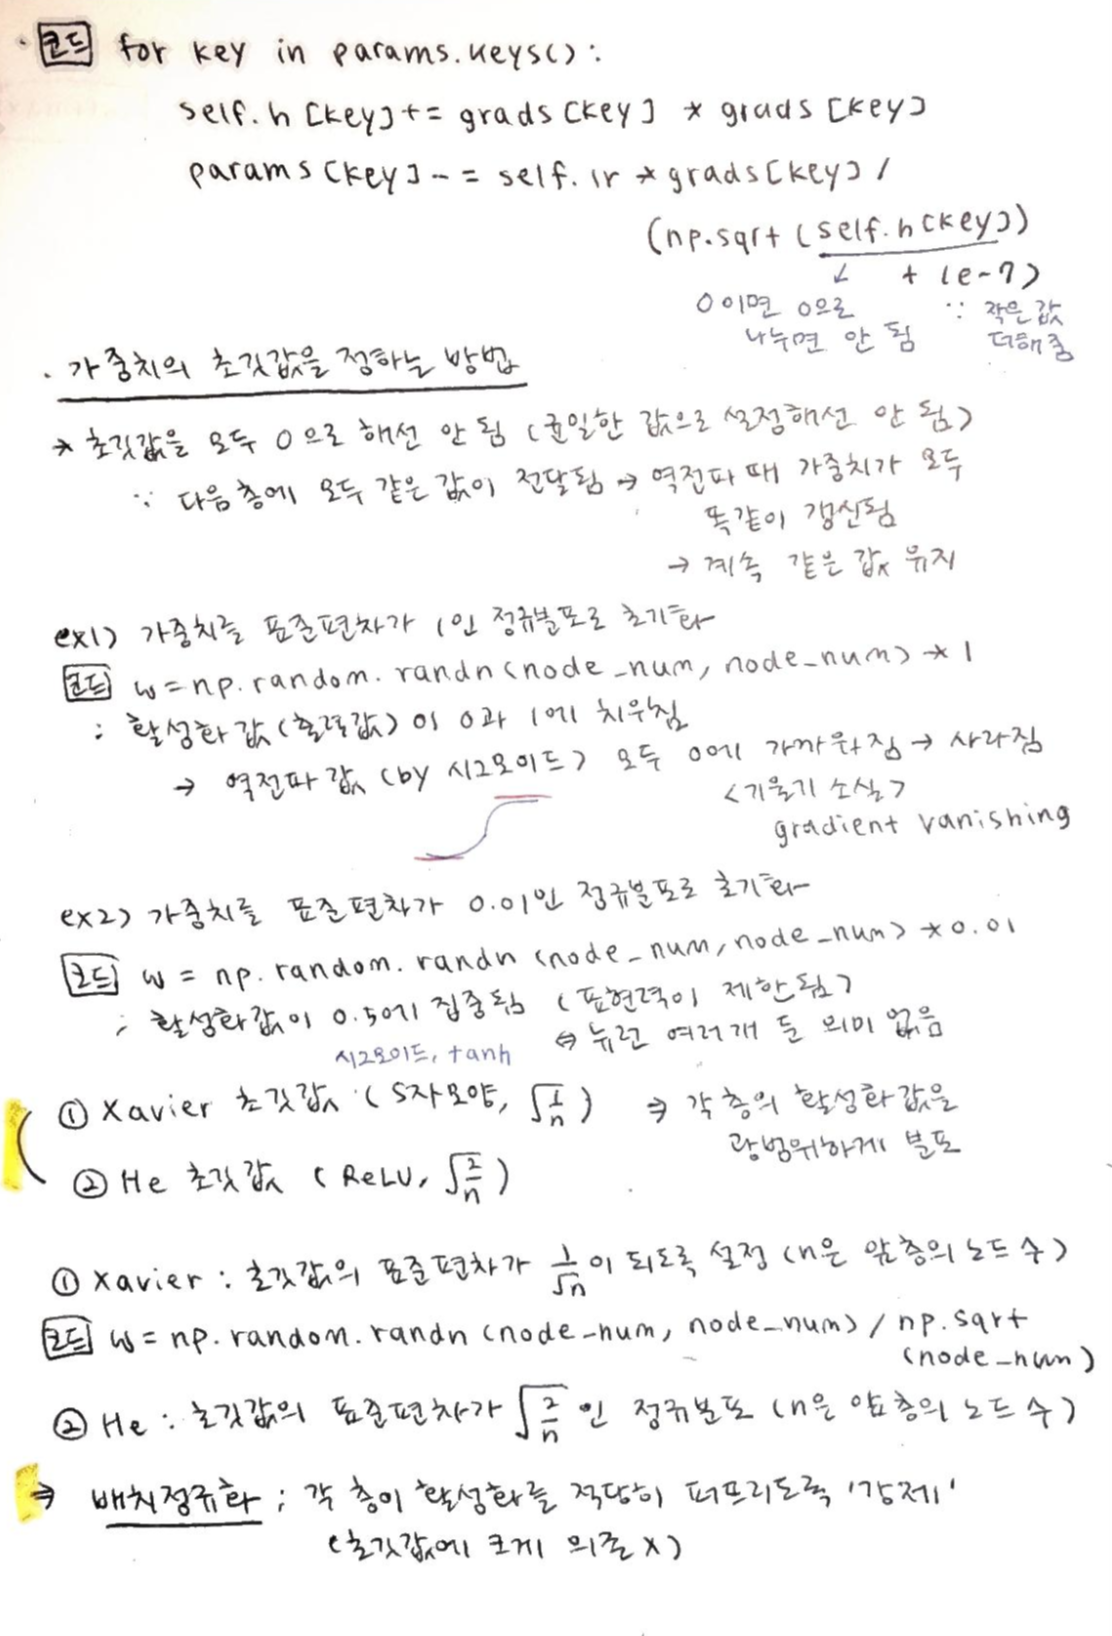 · 코드 for key in params.keys():
self.h[key] += grads[key] * grads[key]
params[key] -= self.lr * grads[key] /
(np.sqrt(self.h[key])
↓ + 1e-7)
0이면 0으로 ∵ 작은 값
나누면 안 됨 더해줌
· 가중치의 초깃값을 정하는 방법
* 초깃값을 모두 0으로 해선 안 됨 (균일한 값으로 설정해선 안 됨)
∵ 다음 층에 모두 같은 값이 전달됨 → 역전파 때 가중치가 모두
똑같이 갱신됨
→ 계속 같은 값 유지
ex1) 가중치를 표준편차가 1인 정규분포로 초기화
코드 w = np.random.randn(node_num, node_num) * 1
: 활성화 값(출력값)이 0과 1에 치우침
→ 역전파 값 (by 시그모이드) 모두 0에 가까워짐 → 사라짐
<기울기 소실>
gradient vanishing
ex2) 가중치를 표준편차가 0.01인 정규분포로 초기화
코드 w = np.random.randn(node_num, node_num) * 0.01
; 활성화값이 0.5에 집중됨 (표현력이 제한됨)
⇔ 뉴런 여러개 둔 의미 없음
시그모이드, tanh
① Xavier 초깃값 (S자모양, √1/n) ⇒ 각 층의 활성화값을
광범위하게 분포
② He 초깃값 (ReLU, √2/n)
① Xavier : 초깃값의 표준편차가 1/√n이 되도록 설정 (n은 앞 층의 노드 수)
코드 w = np.random.randn(node_num, node_num) / np.sqrt
(node_num)
② He : 초깃값의 표준편차가 √2/n 인 정규분포 (n은 앞 층의 노드 수)
⇒ 배치정규화 ; 각 층이 활성화를 적당히 퍼뜨리도록 '강제'
(초깃값에 크게 의존 X)